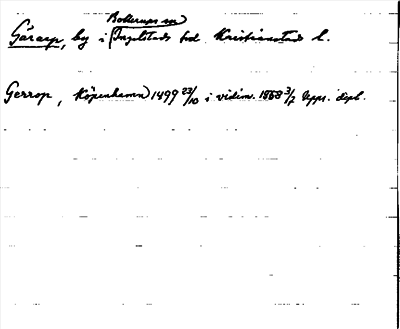 Bollerups sn
Gårarp, by i Ingelstads hd. Kristianstads l.
Gerrop, Köpenhamn 1499 23/10 i vidim. 1558 3/2 Upps. dipl.